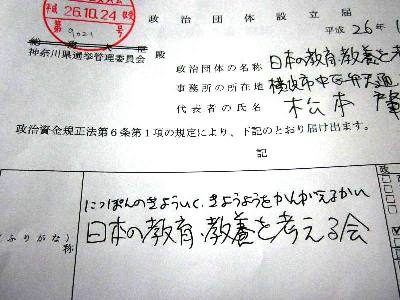 26.10.24
第 9021 号
政治団体設立届
平成 26年 1
神奈川県選挙管理委員会 殿
政治団体の名称 日本の教育・教養を考
事務所の所在地 横浜市中区弁天通
代表者の氏名 松本
政治資金規正法第6条第1項の規定により、下記のとおり届け出ます。
記
にっぽんのきょういく、きょうようをかんがえるかい
(ふりがな)
称 日本の教育・教養を考える会
政